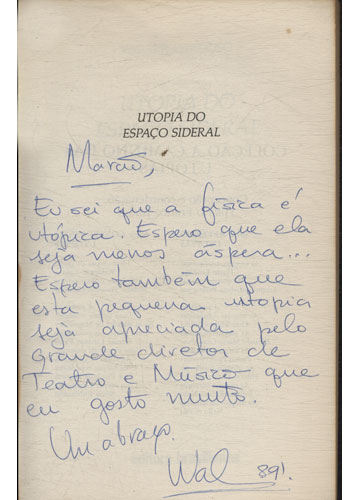 UTOPIA DO
ESPAÇO SIDERAL
Marcão,
Eu sei que a física é
utópica. Espero que ela
seja menos áspera...
Espero também que
esta pequena utopia
seja apreciada pelo
Grande diretor de
Teatro e Músico que
eu gosto muito.
Um abraço.
Wal 89!